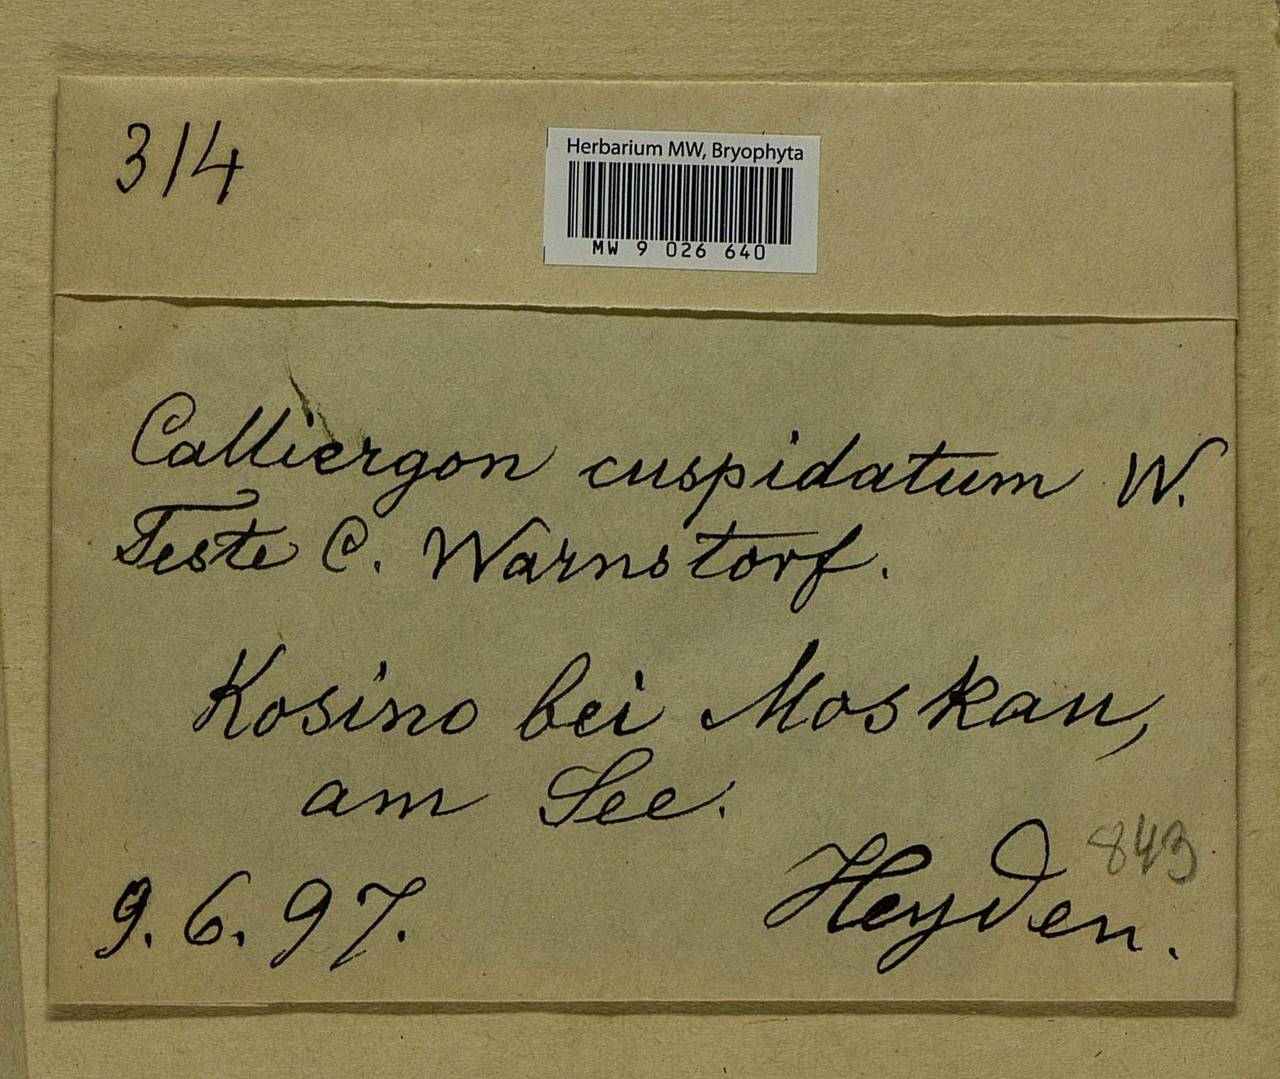 314
Herbarium MW, Bryophyta
MW 9 026 640
Calliergon cuspidatum W.
Teste C. Warnstorf.
Kosino bei Moskau,
am See.
843
9. 6. 97.
Heyden.